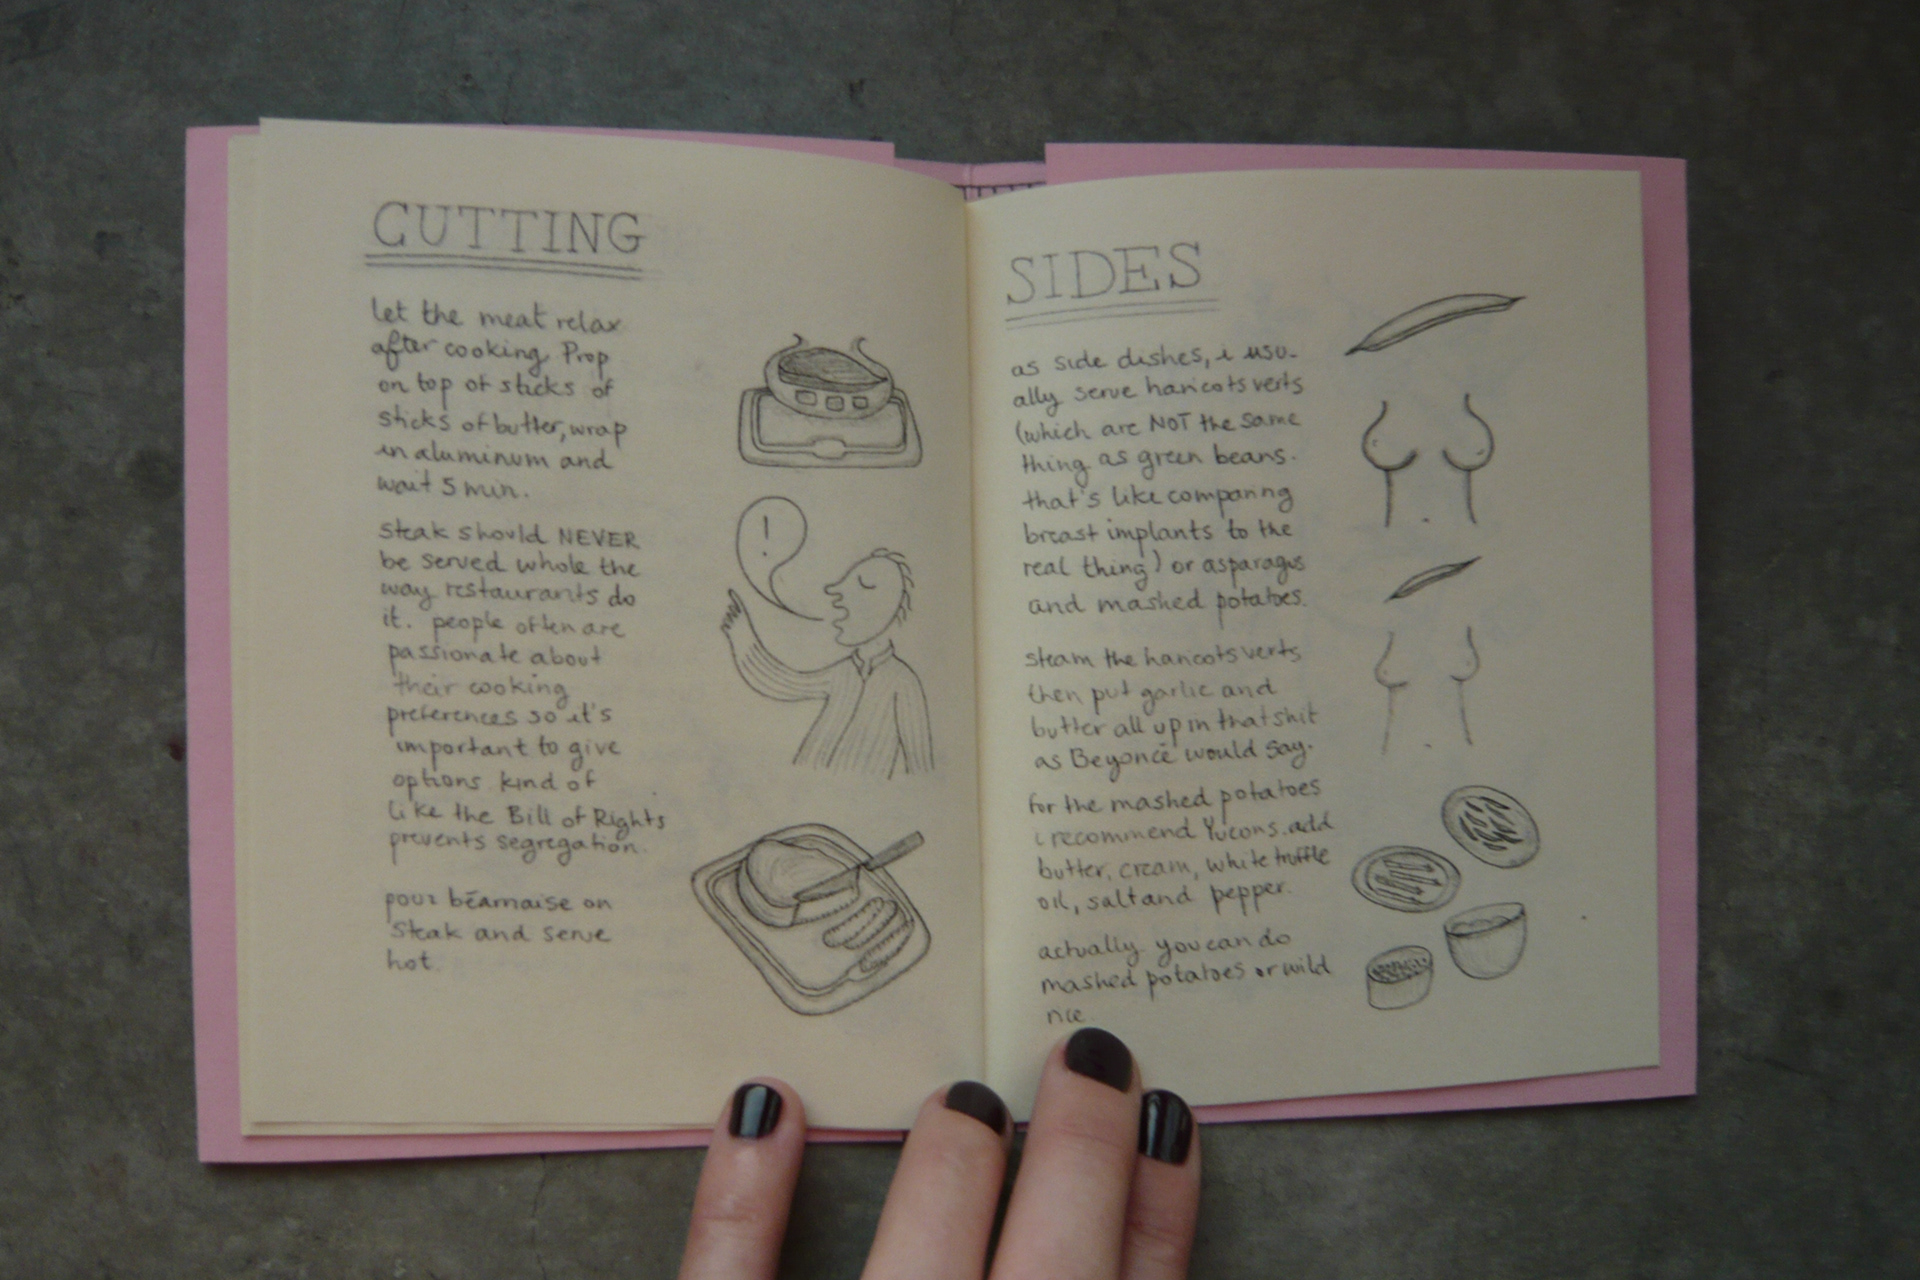 CUTTING
let the meat relax
after cooking. Prop
on top of sticks of
sticks of butter, wrap
in aluminum and
wait 5 min.
steak should NEVER
be served whole the
way restaurants do
it. people often are
passionate about
their cooking
preferences so it's
important to give
options. kind of
like the Bill of Rights
prevents segregation.
pour béarnaise on
steak and serve
hot.
!
SIDES
as side dishes, i usu-
ally serve haricots verts
(which are NOT the same
thing as green beans.
that's like comparing
breast implants to the
real thing) or asparagus
and mashed potatoes.
steam the haricots verts
then put garlic and
butter all up in that shit
as Beyoncé would say.
for the mashed potatoes
i recommend Yucons. add
butter, cream, white truffle
oil, salt and pepper.
actually you can do
mashed potatoes or wild
rice.